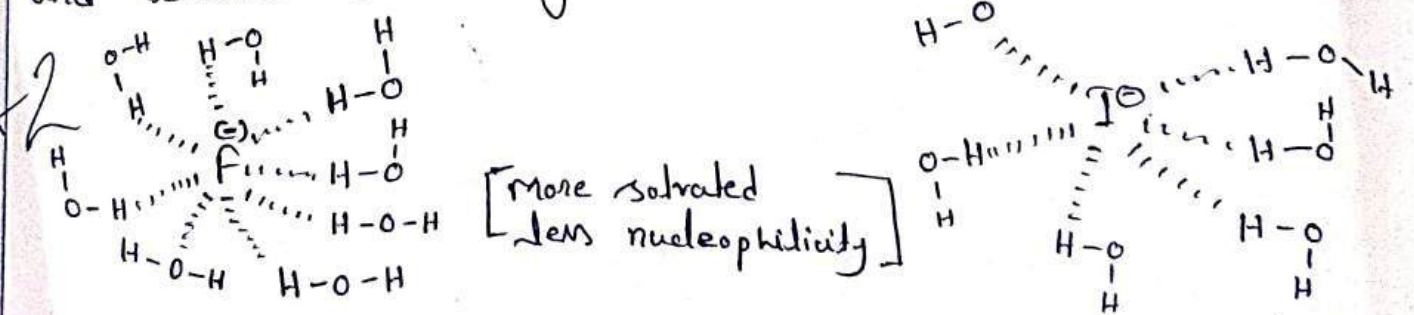 H-O
O-H
H-O
H
H
H-O
H
H-O-H
H
H-O
H
⊖
F
H
O-H
H-O
H-O-H
H-O-H
H-O-H
[More solvated
less nucleophilicity]
I⊖
H-O-H
H
O-H
H
H-O
H-O
H
H-O
H